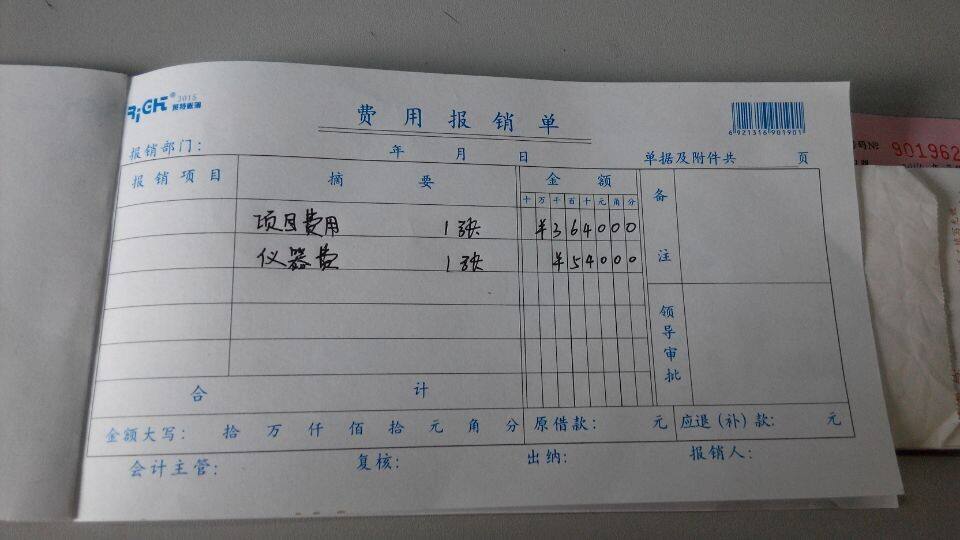 RiGHT® 3015
莱特账簿
费用报销单
6921316901901
报销部门： 年 月 日 单据及附件共 页
号码№ 901962
报销项目 摘要 金额 备注
十 万 千 百 十 元 角 分
项目费用 1张 ¥364000
仪器费 1张 ¥54000
领导审批
合计
金额大写： 拾 万 仟 佰 拾 元 角 分 原借款： 元 应退（补）款： 元
会计主管： 复核： 出纳： 报销人：